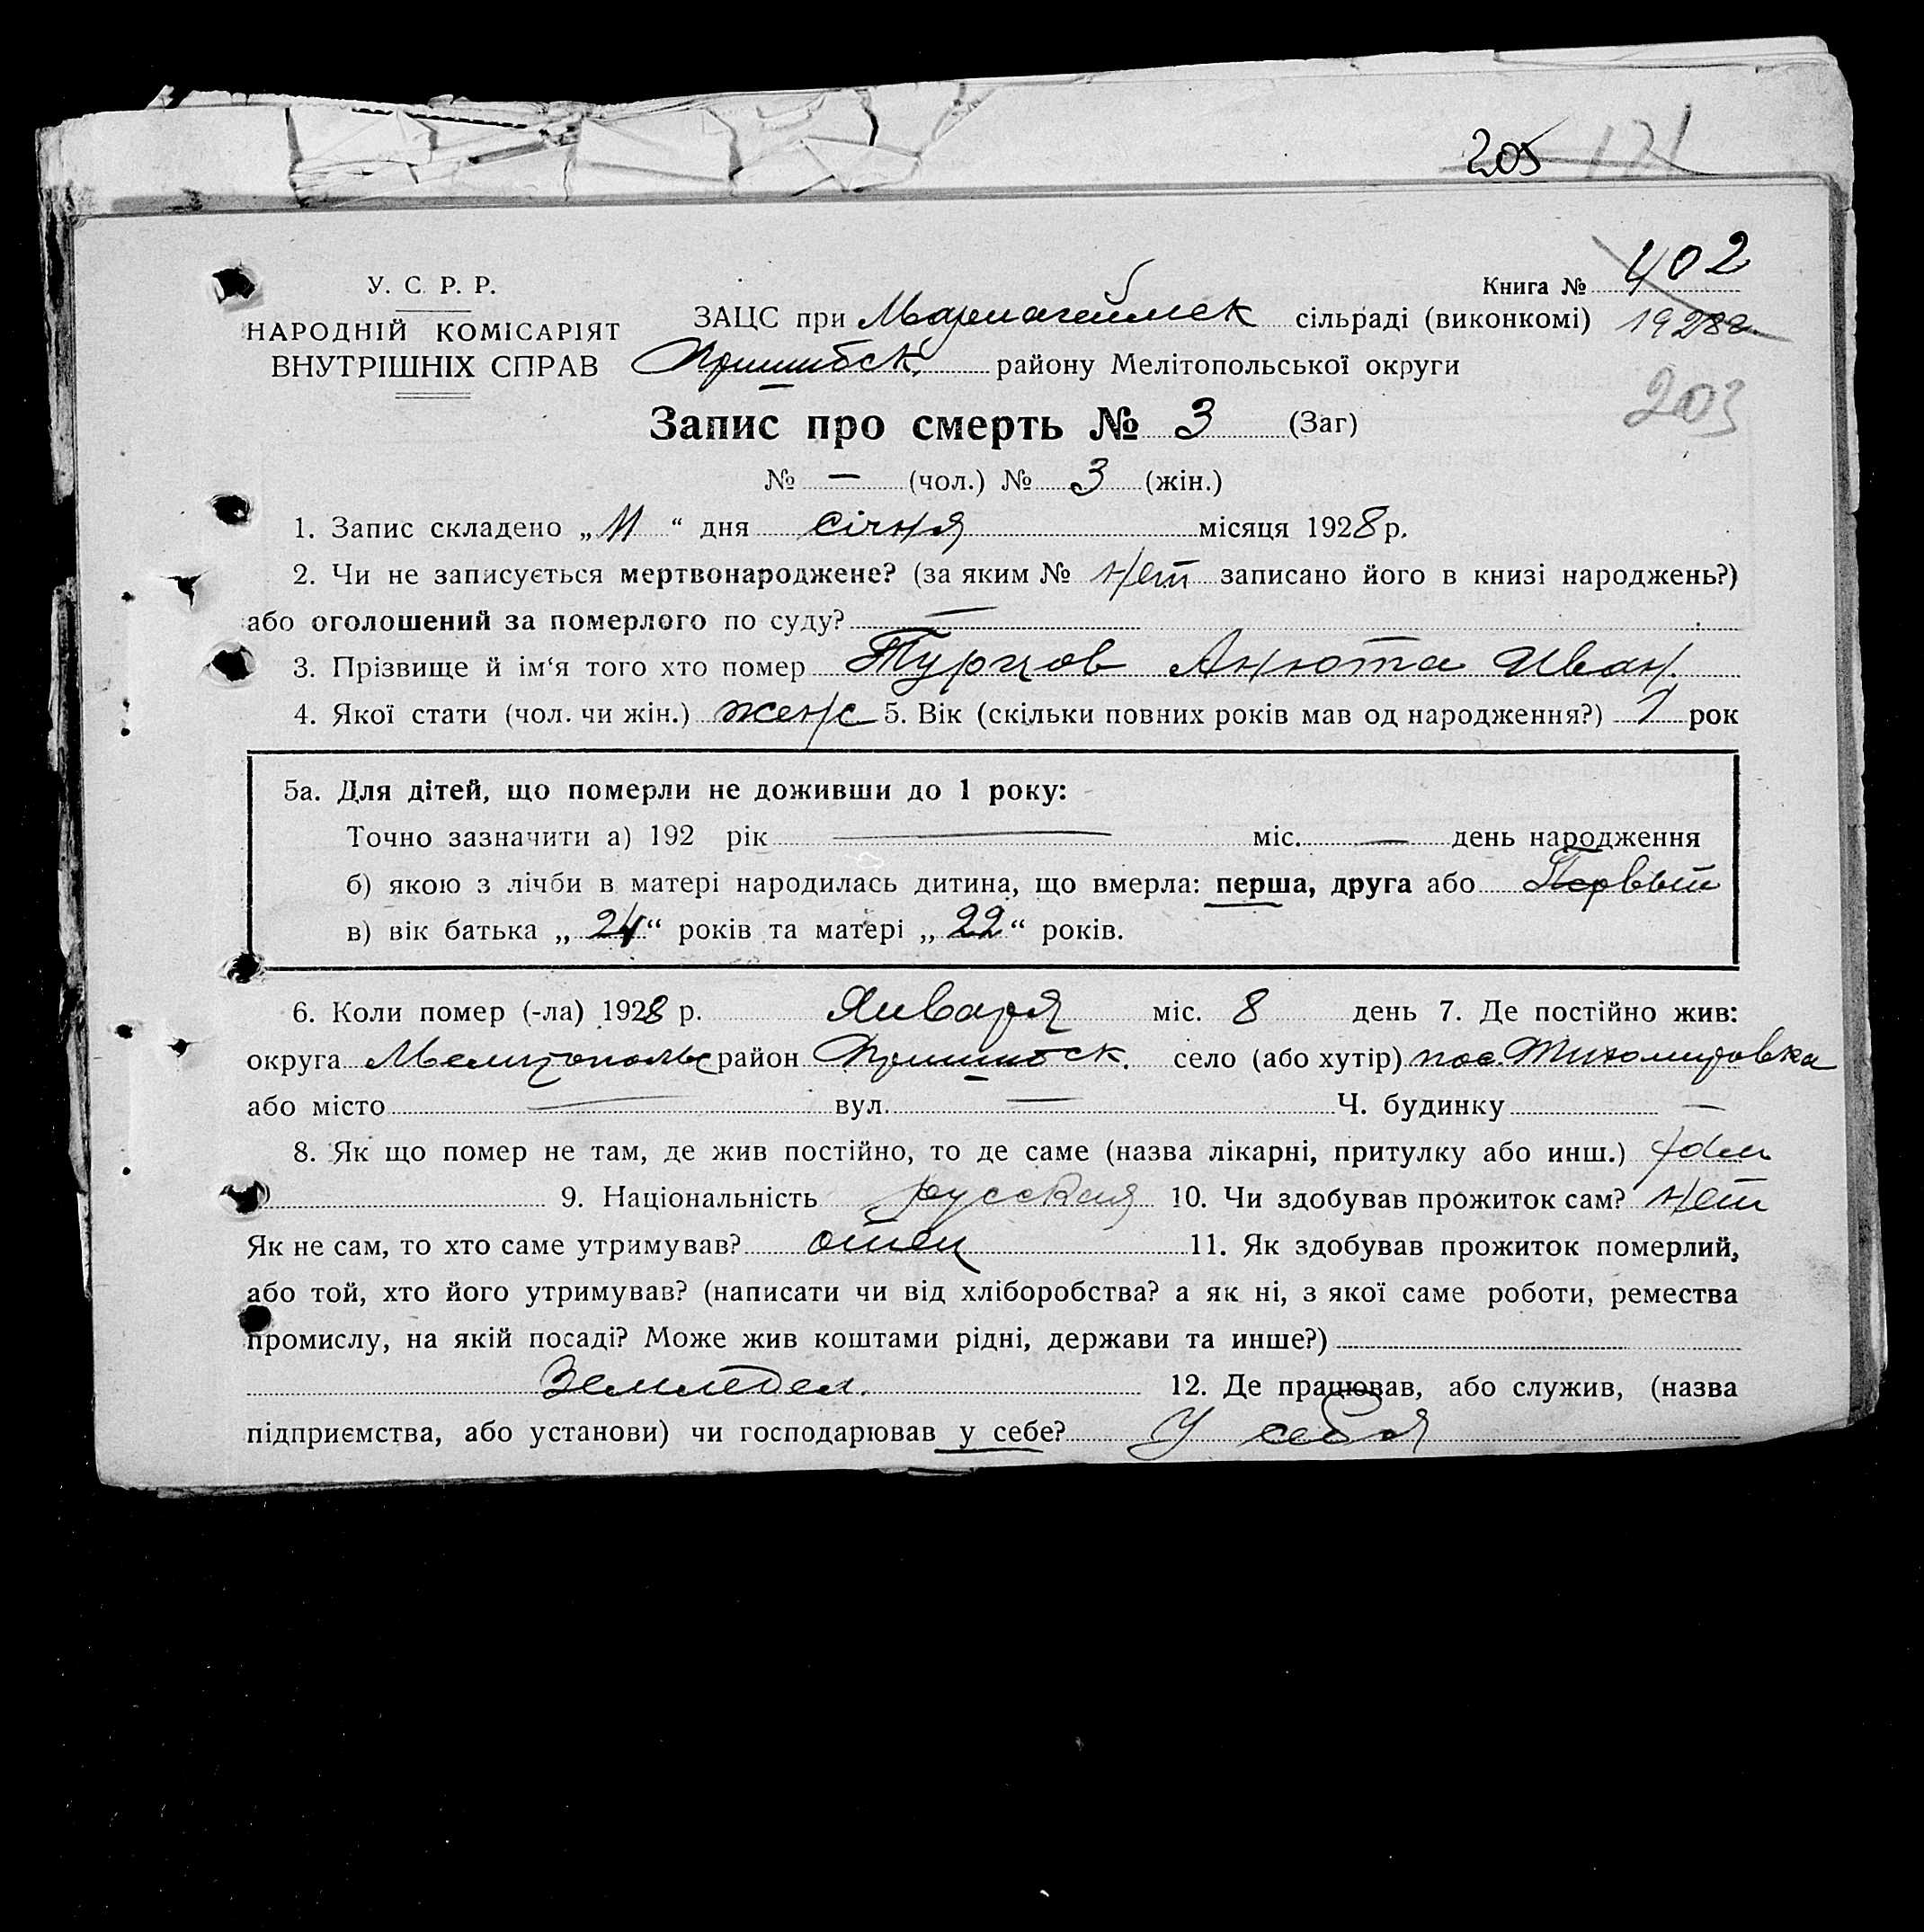 205 121
У. С. Р. Р.
НАРОДНІЙ КОМІСАРІЯТ
ВНУТРІШНІХ СПРАВ
Книга № 402
ЗАЦС при Мариагеймск сільраді (виконкомі) 1928 г
Пришибск. району Мелітопольської округи
203
Запис про смерть № 3 (Заг)
№ — (чол.) № 3 (жін.)
1. Запис складено „ 11 “ дня січня місяця 1928 р.
2. Чи не записується мертвонароджене? (за яким № Нет записано його в книзі народжень?)
або оголошений за померлого по суду? —
3. Прізвище й ім‘я того хто помер Турцов Анюта Иван.
4. Якої стати (чол. чи жін.) женс 5. Вік (скільки повних років мав од народження?) 1 рок
5а. Для дітей, що померли не доживши до 1 року:
Точно зазначити а) 192 рік — міс. — день народження
б) якою з лічби в матері народилась дитина, що вмерла: перша, друга або Первый
в) вік батька „ 24 “ років та матері „ 22 “ років.
6. Коли помер (-ла) 1928 р. Января міс. 8 день 7. Де постійно жив:
округа Мелитопольс район Пришибск. село (або хутір) пос. Тихомировка
або місто — вул. — Ч. будинку —
8. Як що помер не там, де жив постійно, то де саме (назва лікарні, притулку або инш.)
9. Національність русская 10. Чи здобував прожиток сам? Нет
Як не сам, то хто саме утримував? отец 11. Як здобував прожиток померлий,
або той, хто його утримував? (написати чи від хліборобства? а як ні, з якої саме роботи, ремества
промислу, на якій посаді? Може жив коштами рідні, держави та инше?)
Земледел. 12. Де працював, або служив, (назва
підприємства, або установи) чи господарював у себе? У себя